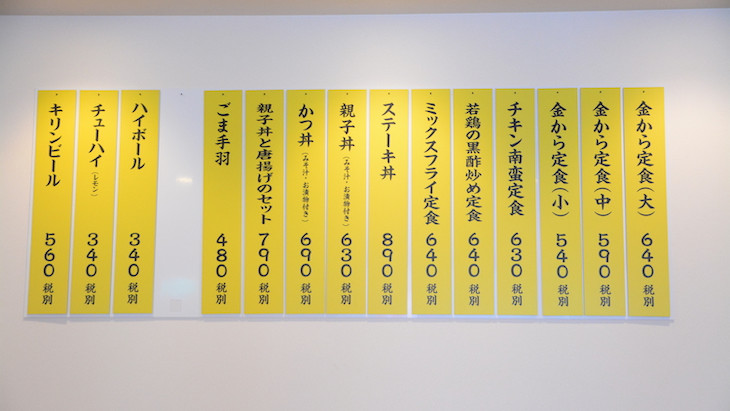 金から定食(大) 640 税別
金から定食(中) 590 税別
金から定食(小) 540 税別
チキン南蛮定食 630 税別
若鶏の黒酢炒め定食 640 税別
ミックスフライ定食 640 税別
ステーキ丼 890 税別
親子丼(みそ汁・お漬物付き) 630 税別
かつ丼(みそ汁・お漬物付き) 690 税別
親子丼と唐揚げのセット 790 税別
ごま手羽 480 税別
ハイボール 340 税別
チューハイ(レモン) 340 税別
キリンビール 560 税別